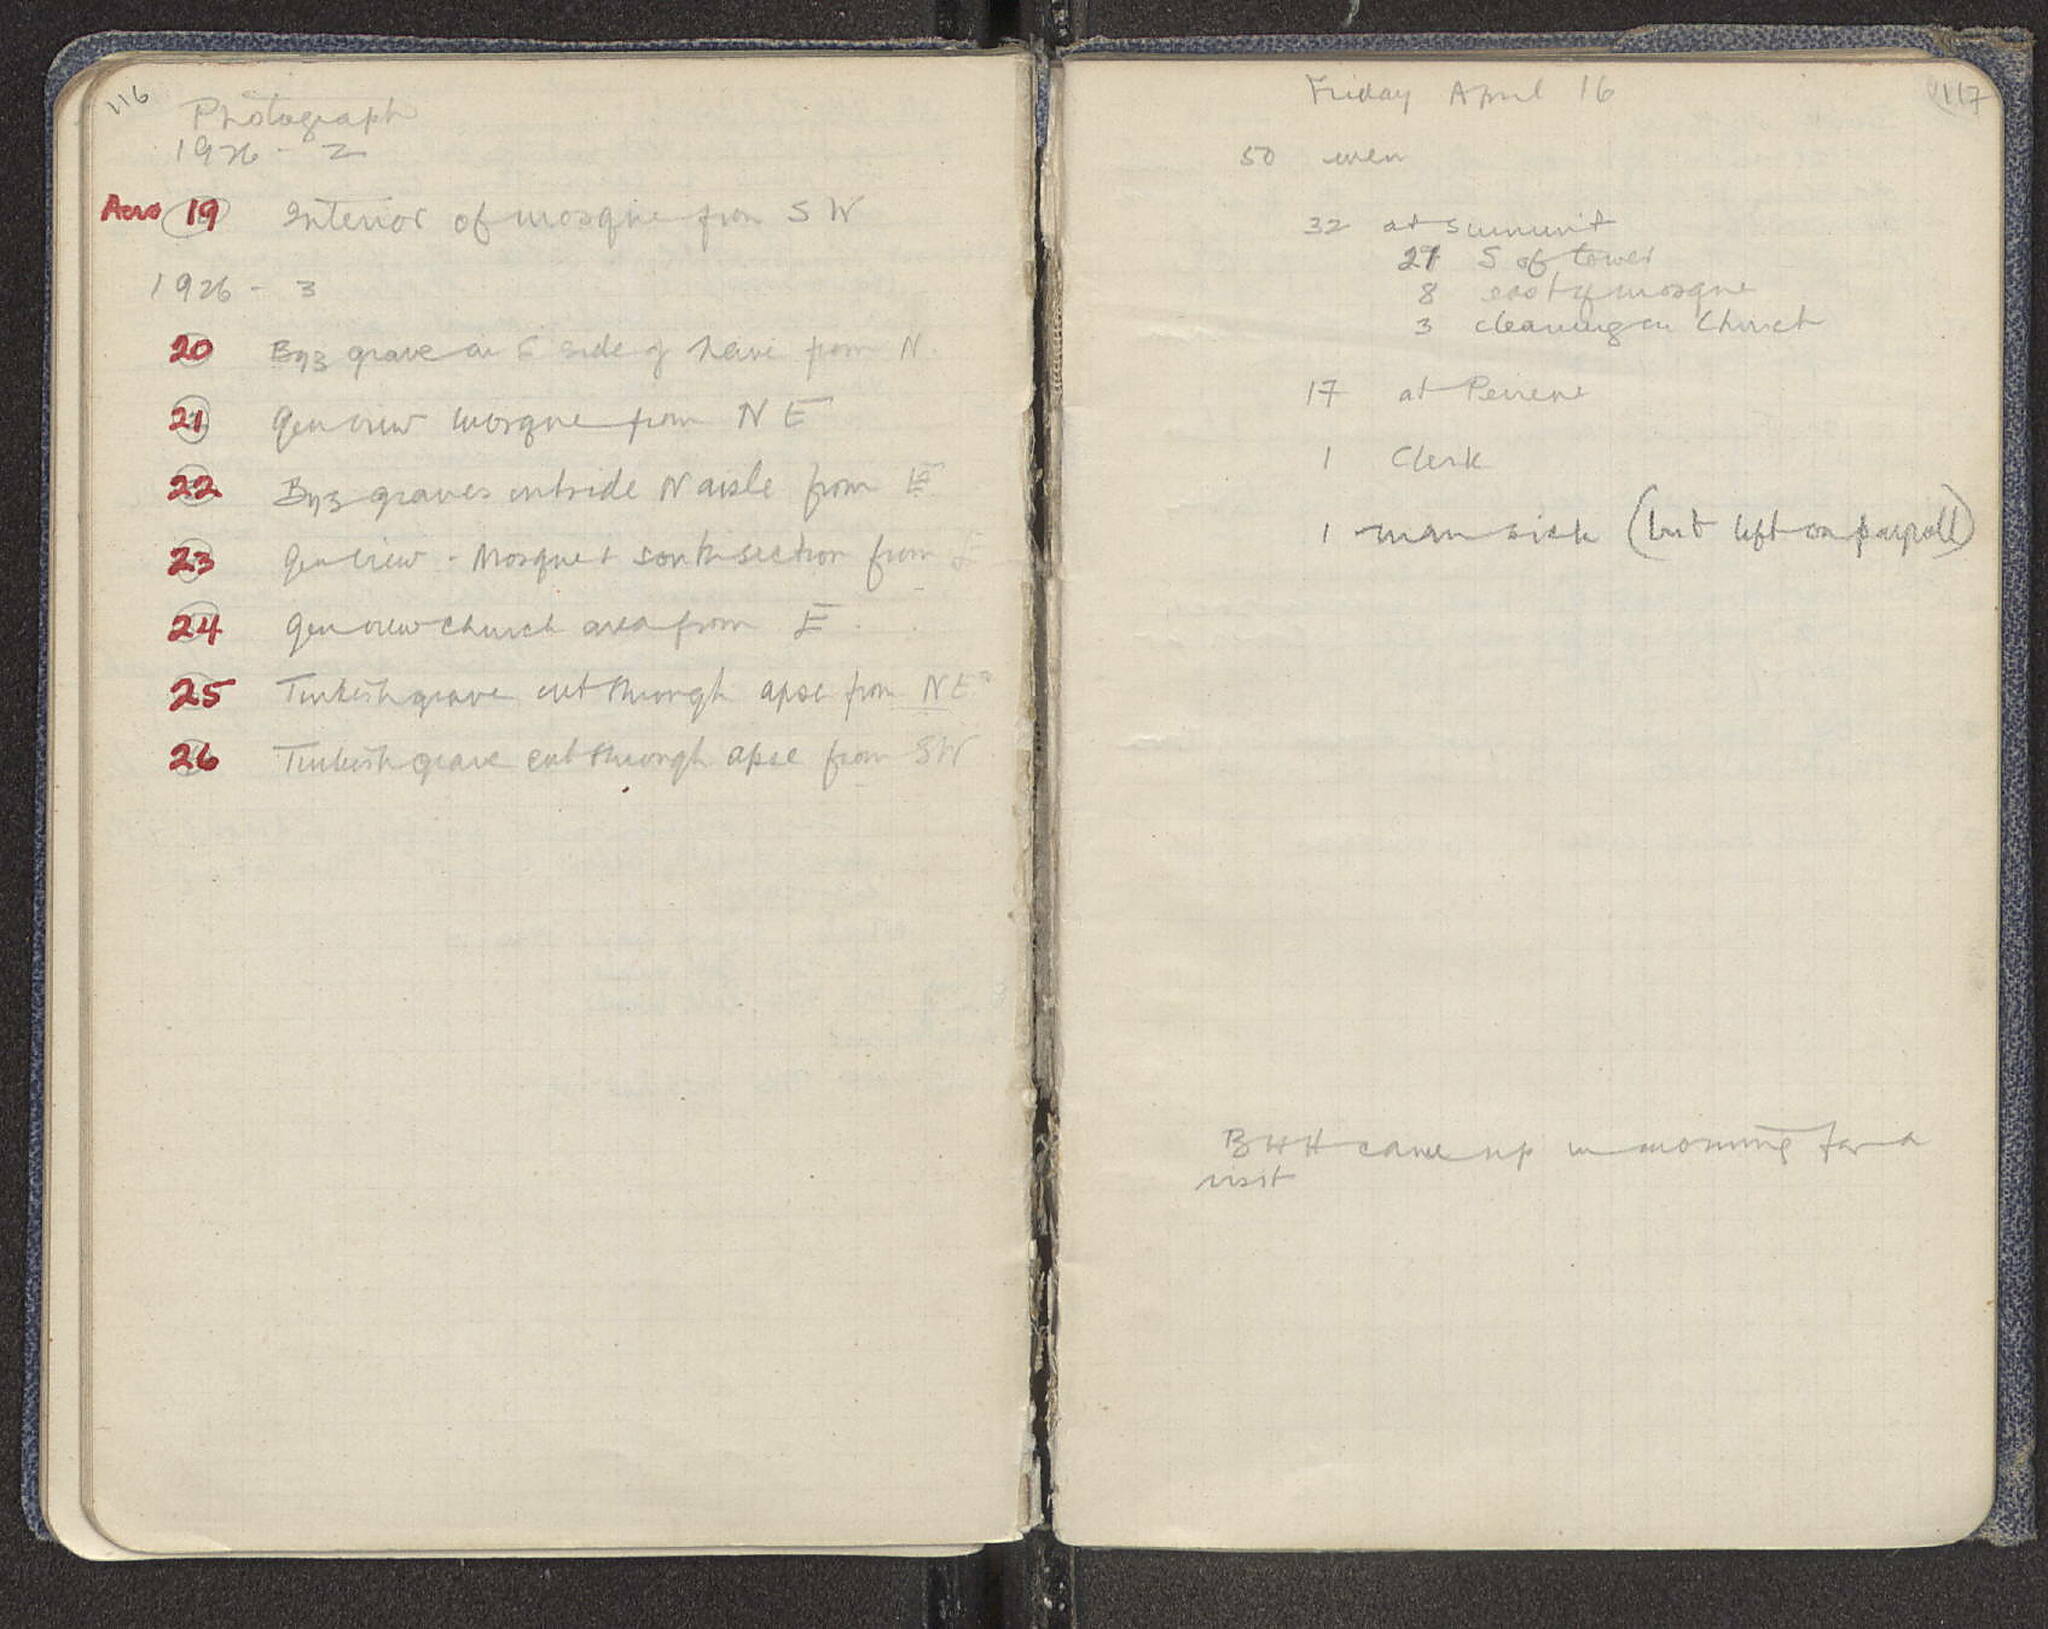 116
Photograph
1926 - 2
Acro 19 Interior of mosque from SW
1926 - 3
20 Byz grave on S side of nave from N.
21 Gen view mosque from NE
22 Byz graves outside N aisle from E
23 Gen view - Mosque + south section from E
24 Gen view church area from E.
25 Turkish grave cut through apse from NE
26 Turkish grave cut through apse from SW
117
Friday April 16
50 men
32 at summit
21 S of tower
8 east of mosque
3 cleaning in Church
17 at Peirene
1 Clerk
1 man sick (but left on payroll)
BHH came up in morning for a
visit